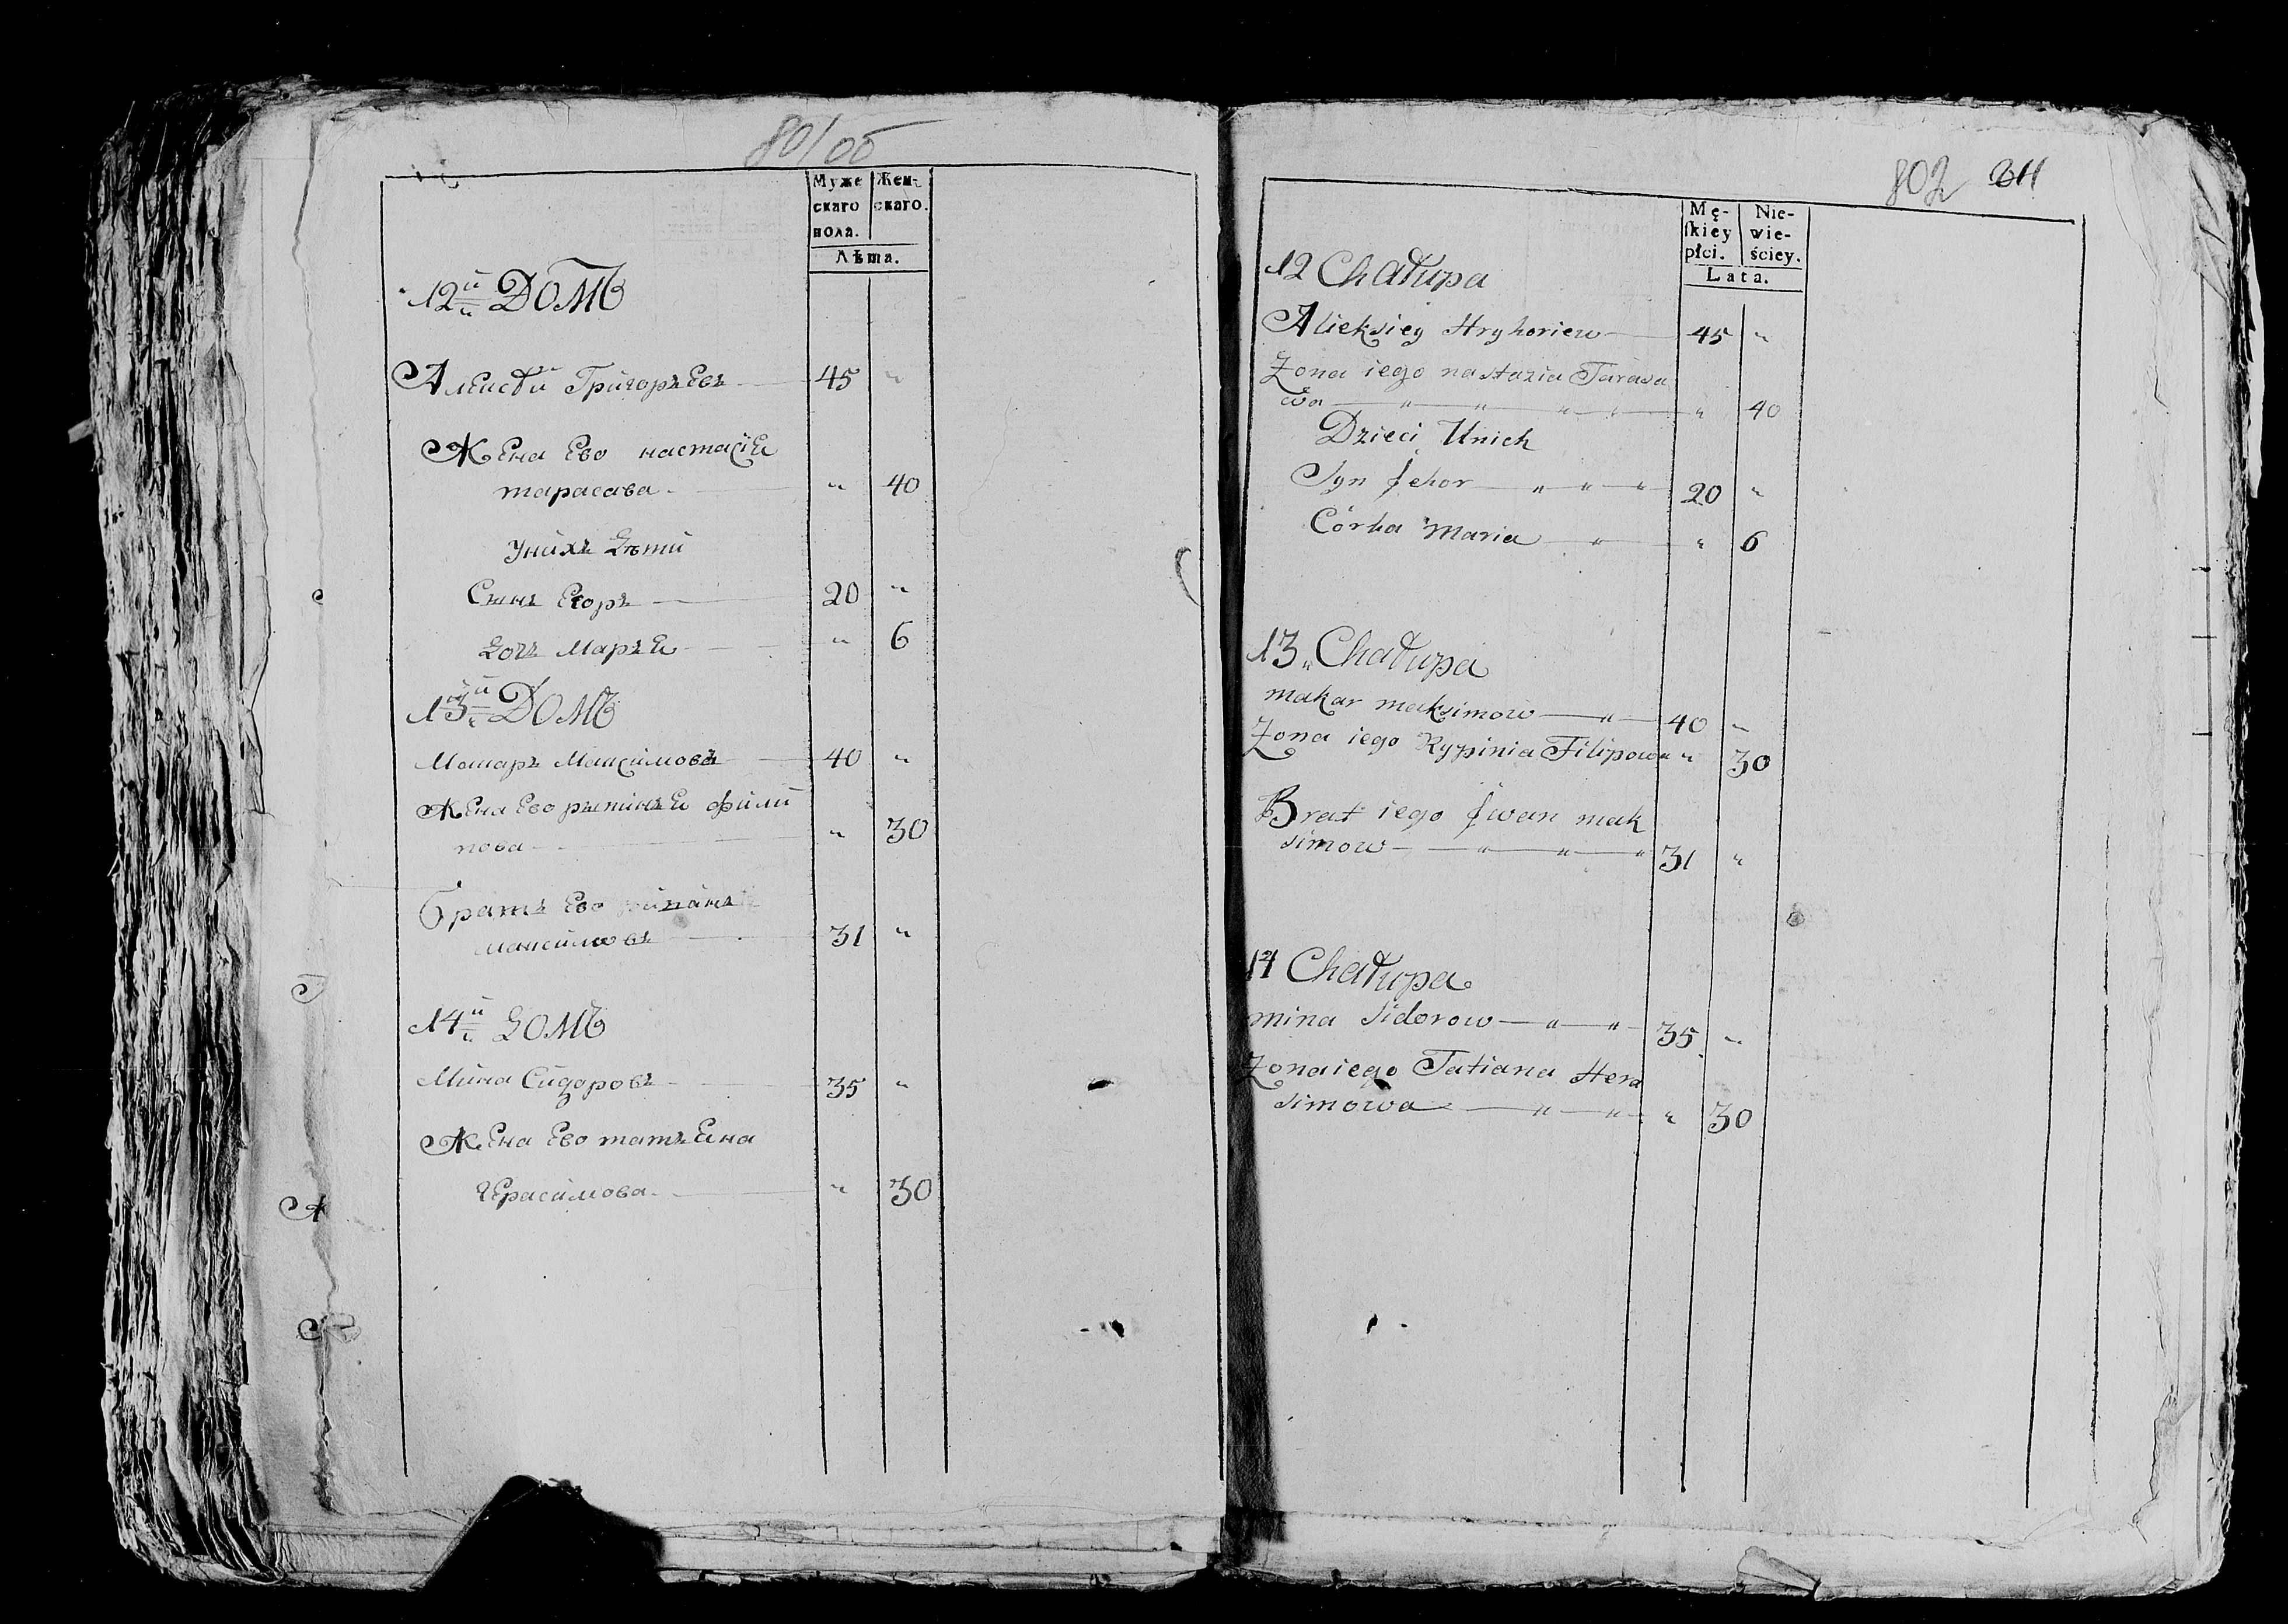 80/об
Муже
скаго
пола.
Жен-
скаго.
Лѣта.
12й ДОМЪ
Алексѣй Григорьевъ 45 "
Жена Ево настасія
тарасава " 40
Унихъ Дѣти
Сынъ Егоръ 20 "
Дочь Марья " 6
13й ДОМЪ
Макаръ Максимовъ 40 "
Жена Ево рыпинья фили
пова " 30
братъ Ево
максимовъ 31 "
14й ДОМЪ
Мина Сидоровъ 35 "
Жена Ево татьяна
Герасимова " 30
802
Mę-
ſkiey
płci.
Nie-
wie-
ściey.
Lata.
12 Chałupa
Alieksiey Hryhoriew 45 "
Zona iego nastazia Tarasa
wa " " " " " 40
Dzieci Unich
Syn Jehor " " " 20 "
Córka Maria " " 6
13 „ Chałupa
makar maksimow " 40 "
Zona iego Rypinia Filipowa " 30
Brat iego Jwan mak
simow " " " 31 "
14 Chałupa
mina Sidorow " " 35 "
Zona iego Tatiana Hera
simowa " " " 30